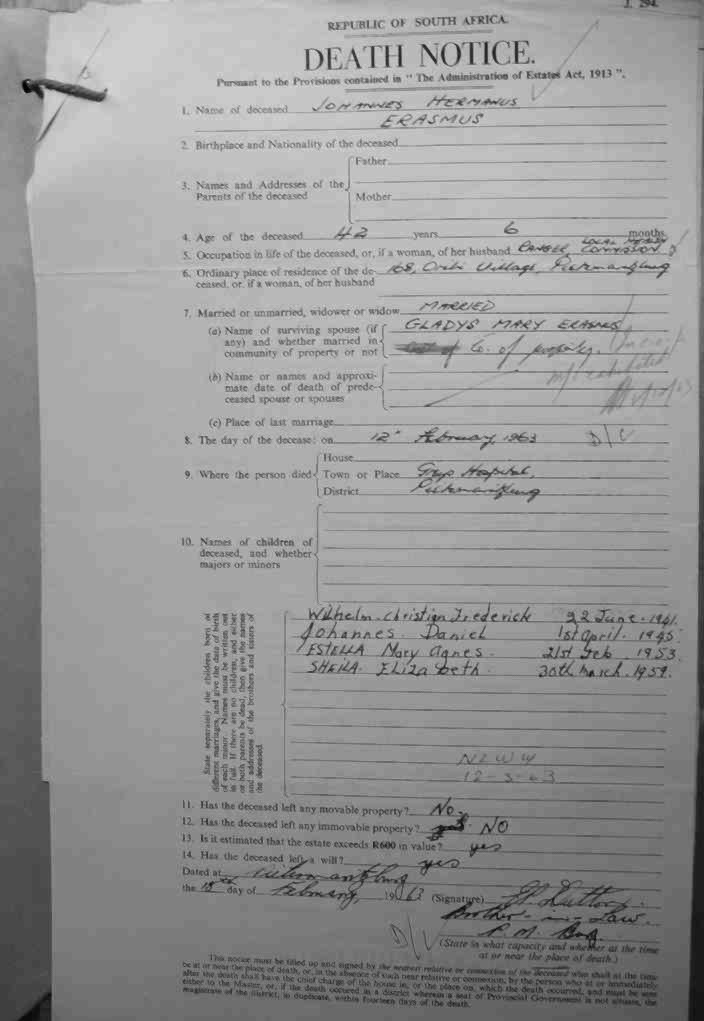 J. 294.
REPUBLIC OF SOUTH AFRICA.
DEATH NOTICE.
Pursuant to the Provisions contained in "The Administration of Estates Act, 1913".
1. Name of deceased JOHANNES HERMANUS
ERASMUS
2. Birthplace and Nationality of the deceased
3. Names and Addresses of the Parents of the deceased
Father
Mother
4. Age of the deceased 42 years 6 months
5. Occupation in life of the deceased, or, if a woman, of her husband RANGER, LOCAL HEALTH COMMISSION
6. Ordinary place of residence of the de- 168, Oribi Village, Pietermaritzburg
ceased, or, if a woman, of her husband
7. Married or unmarried, widower or widow MARRIED
(a) Name of surviving spouse (if GLADYS MARY ERASMUS
any) and whether married in
community of property or not of Co. of property.
(b) Name or names and approxi-
mate date of death of prede-
ceased spouse or spouses
(c) Place of last marriage
8. The day of the decease: on 12th February, 1963 D/V
House
9. Where the person died Town or Place Greys Hospital,
District Pietermaritzburg
10. Names of children of
deceased, and whether
majors or minors
State separately the children born of
different marriages, and give the date of birth
of each minor. Names must be written out
in full. If there are no children, and either
or both parents be dead, then give the names
and addresses of the brothers and sisters of
the deceased.
Wilhelm Christian Frederick 22 June. 1941.
Johannes. Daniel 1st April. 1945.
ESTELLA Mary Agnes. 21st Feb. 1953.
SHEILA. Elizabeth. 30th March. 1959.
12-3-63
11. Has the deceased left any movable property? No.
12. Has the deceased left any immovable property? NO
13. Is it estimated that the estate exceeds R600 in value? yes
14. Has the deceased left a will? yes
Dated at Pietermaritzburg
the day of February, 1963 (Signature)
Brother-in-Law.
D/V
(State in what capacity and whether at the time
at or near the place of death.)
This notice must be filled up and signed by the nearest relative or connection of the deceased who shall at the time
be at or near the place of death, or, in the absence of such near relative or connexion, by the person who at or immediately
after the death shall have the chief charge of the house in, or the place on, which the death occurred, and must be sent
either to the Master, or, if the death occured in a district wherein a seat of Provincial Government is not situate, the
magistrate of the district, in duplicate, within fourteen days of the death.